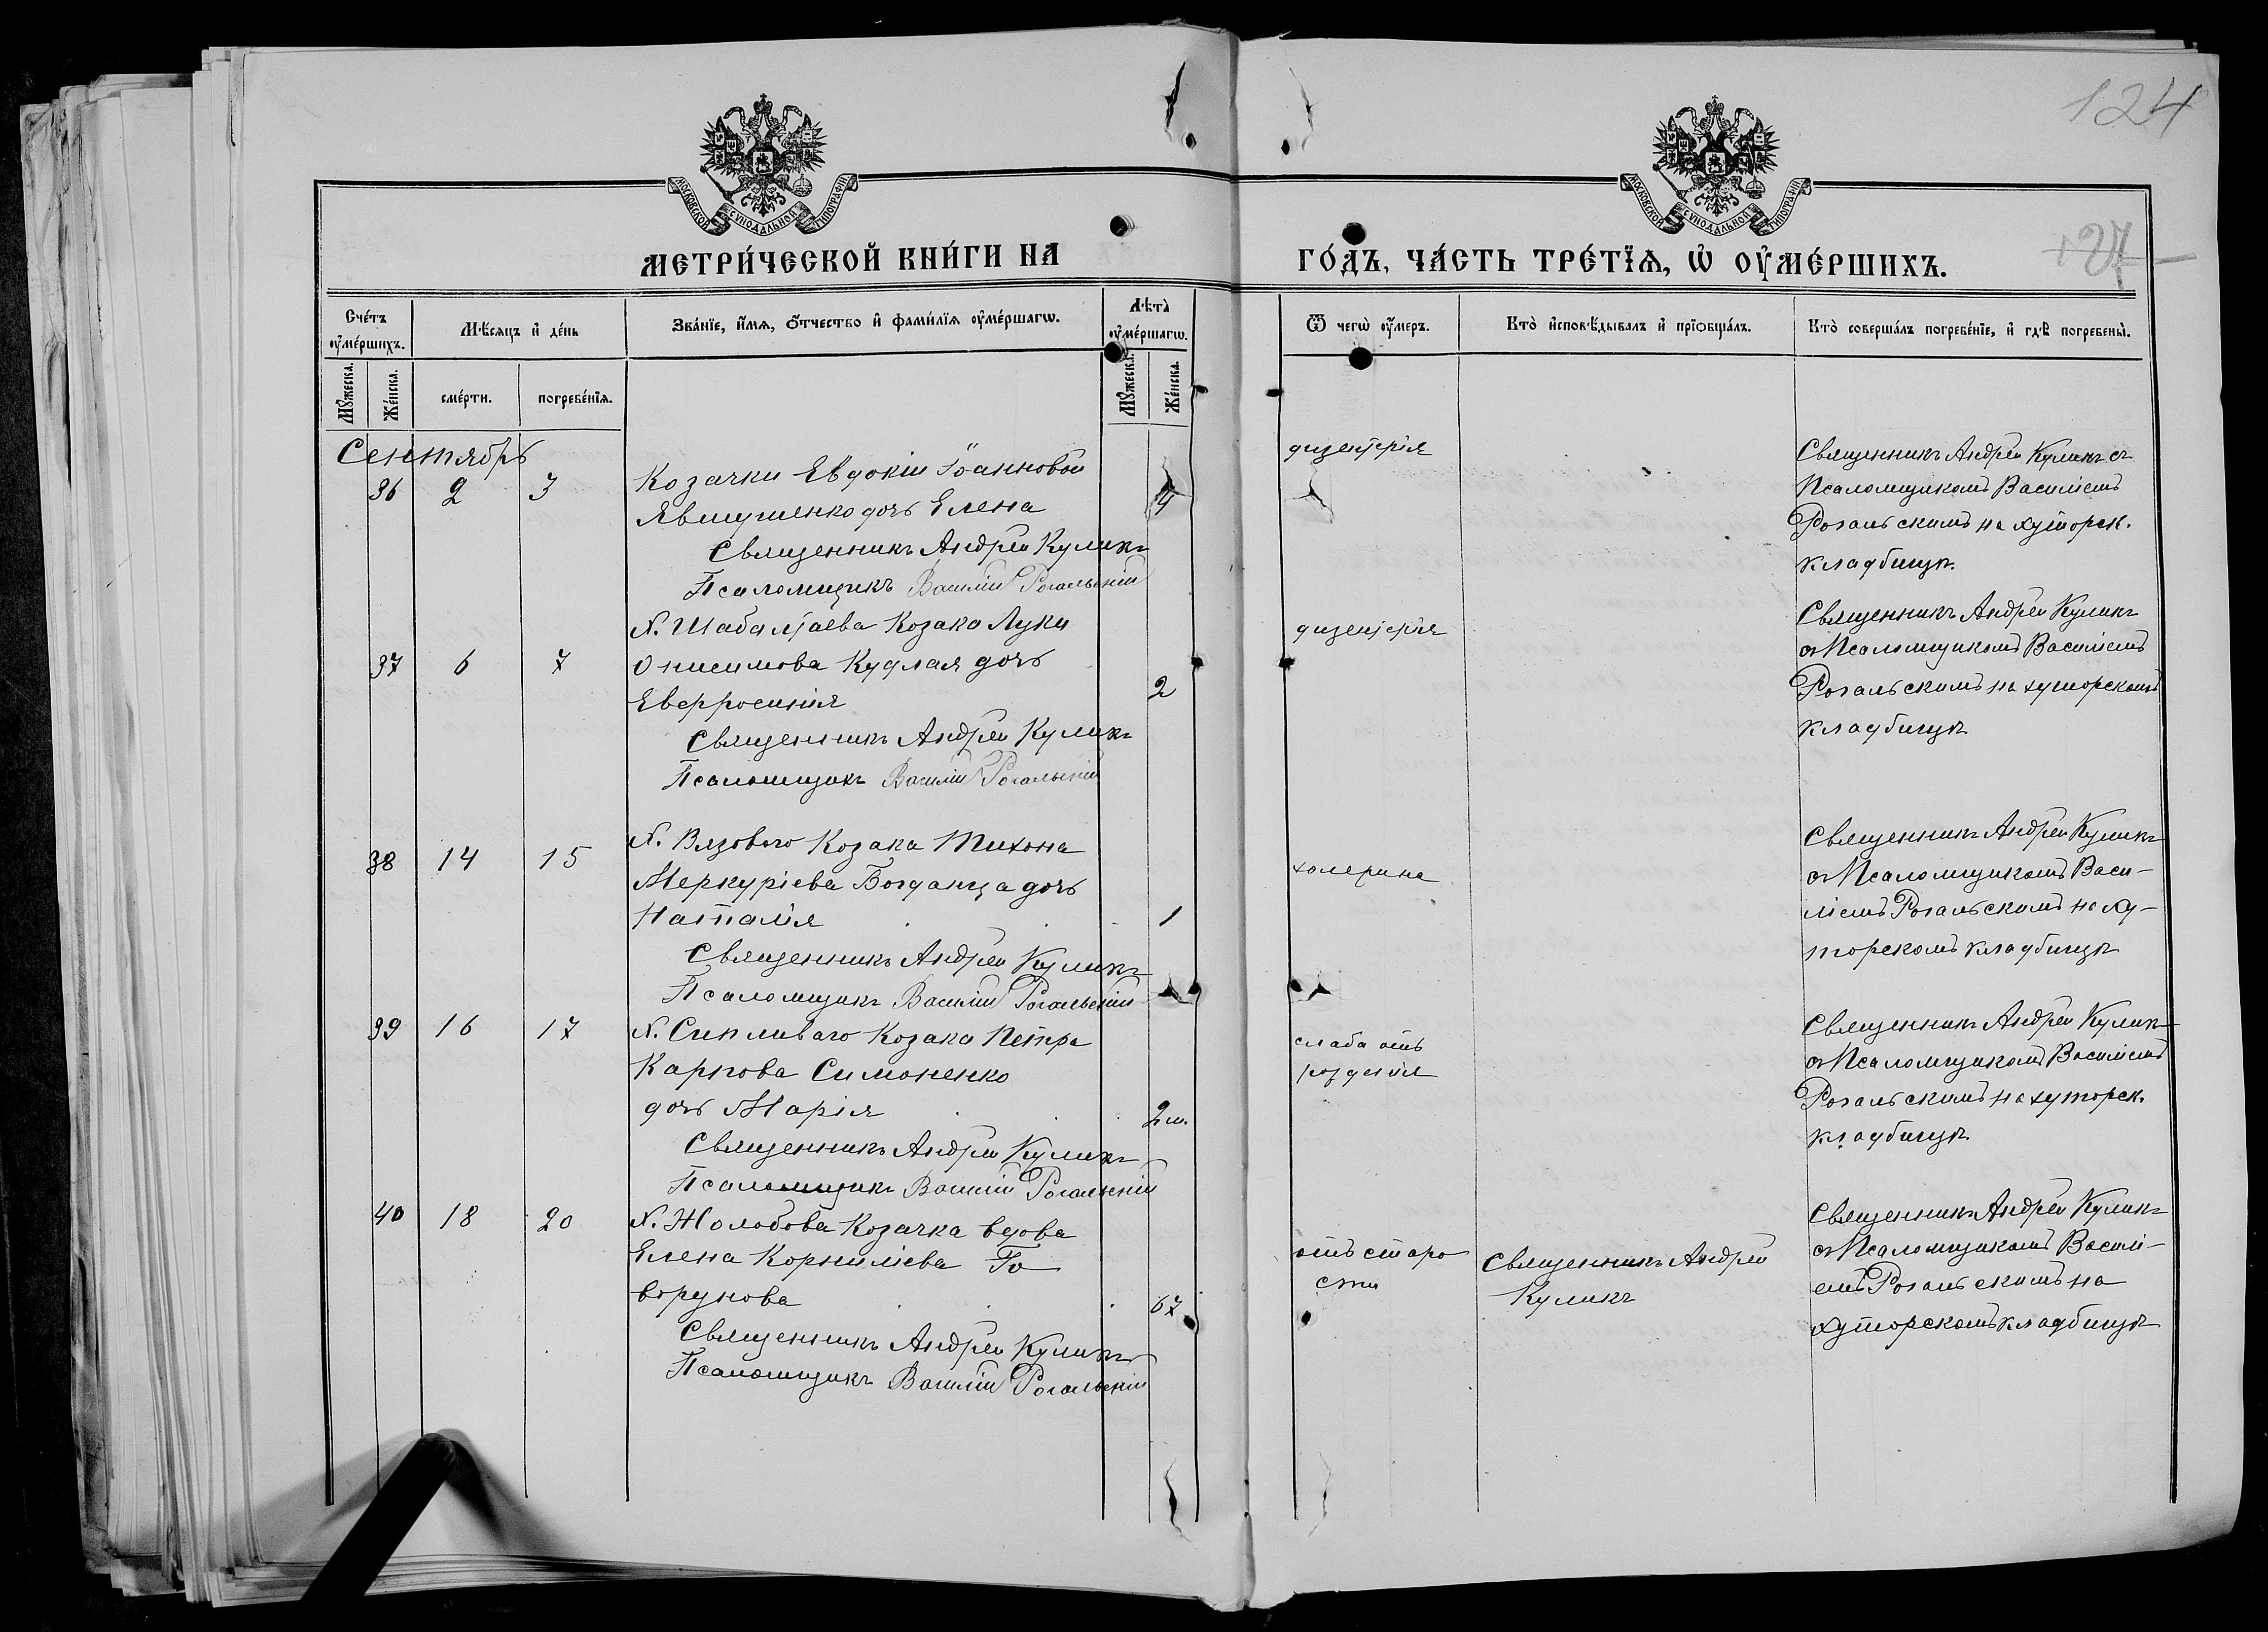 124
127
МОСКОВСКОЙ СѴНОДАЛЬНОЙ ТИПОГРАФІИ
МОСКОВСКОЙ СѴНОДАЛЬНОЙ ТИПОГРАФІИ
МЕТРИ́ЧЕСКОЙ КНИ́ГИ НА
ГО́ДЪ, ЧА́СТЬ ТРЕ́ТЇѦ, Ѡ҆ ОУ҆МЕ́РШИХЪ.
Сче́тъ оу҆ме́ршихъ.
Мѣ́сяцъ и҆ де́нь
Зва́нїе, и҆́мѧ, ѻ҆́тчество и҆ фами́лїѧ оу҆ме́ршагѡ.
Лѣта̀ оу҆ме́ршагѡ.
Ѿ чегѡ̀ оу҆́меръ.
Кто̀ и҆сповѣ́дывалъ и҆ прїѻбща́лъ.
Кто̀ соверша́лъ погребе́нїе, и҆ гдѣ̀ погребены̀.
Мꙋ́жеска.
Же́нска.
сме́рти.
погребе́нїѧ.
Мꙋ́жеска.
Же́нска.
Сентябрь
36 2 3 Козачки Евдокіи Іоанновой
Явтушенко дочь Елена 4
Священникъ Андрей Куликъ
Псаломщикъ Василій Рогальскій
дизентерія
Священникъ Андрей Куликъ съ
Псаломщикомъ Василіемъ
Рогальскимъ на хуторск.
кладбищѣ.
Х. Шабалтаева Козака Луки
37 6 7 Онисимова Кудлая дочь
Евфросинія 2
Священникъ Андрей Куликъ
Псаломщикъ Василій Рогальскій
дизентерія
Священникъ Андрей Куликъ
съ Псаломщикомъ Василіемъ
Рогальскимъ на хуторскомъ
кладбищѣ
Х. Вязового Козака Тихона
38 14 15 Меркуріева Богданца дочь
Наталія 1
Священникъ Андрей Куликъ
Псаломщикъ Василій Рогальскій
холерина
Священникъ Андрей Куликъ
съ Псаломщикомъ Васи-
ліемъ Рогальскимъ на ху-
торскомъ кладбищѣ
39 16 17 Х. Сипливаго Козака Петра
Карпова Симоненко
дочь Марія 2 м.
Священникъ Андрей Куликъ
Псаломщикъ Василій Рогальскій
слаба отъ
рожденія
Священникъ Андрей Куликъ
съ Псаломщикомъ Василіемъ
Рогальскимъ на хуторск.
кладбищѣ
40 18 20 Х. Жолобова Козачка вдова
Елена Корниліева Го
ворунова 67
Священникъ Андрей Куликъ
Псаломщикъ Василій Рогальскій
отъ старо
сти
Священникъ Андрей
Куликъ
Священникъ Андрей Куликъ
съ Псаломщикомъ Васілі-
емъ Рогальскимъ на
хуторскомъ кладбищѣ